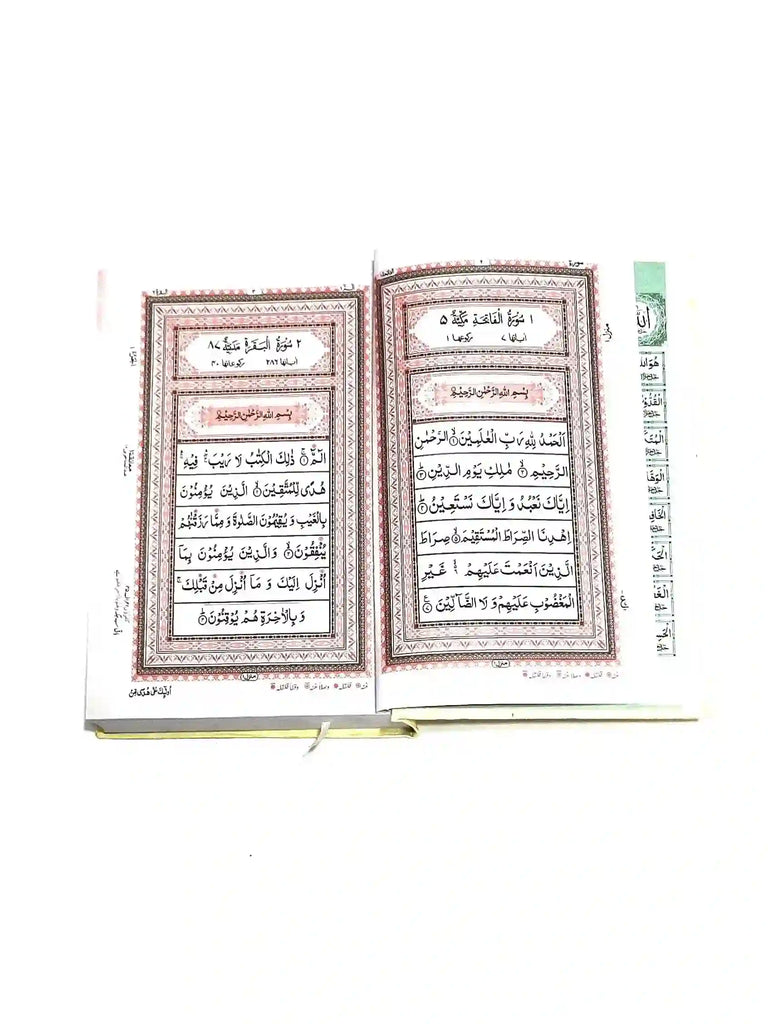 ١ سُوْرَةُ الْفَاتِحَةِ مَكِّيَّةٌ ٥
اٰیاتها ٧ رکوعها ١
بِسْمِ اللّٰهِ الرَّحْمٰنِ الرَّحِيْمِ
اَلْحَمْدُ لِلّٰهِ رَبِّ الْعٰلَمِيْنَ ۙ﴿١﴾ الرَّحْمٰنِ
الرَّحِيْمِ ۙ﴿٢﴾ مٰلِكِ يَوْمِ الدِّيْنِ ؕ﴿٣﴾
اِيَّاكَ نَعْبُدُ وَ اِيَّاكَ نَسْتَعِيْنُ ؕ﴿٤﴾
اِهْدِنَا الصِّرَاطَ الْمُسْتَقِيْمَ ۙ﴿٥﴾ صِرَاطَ
الَّذِيْنَ اَنْعَمْتَ عَلَيْهِمْ ۙ﴿٦﴾ غَيْرِ
الْمَغْضُوْبِ عَلَيْهِمْ وَ لَا الضَّآلِّيْنَ ﴿٧﴾
منزل ١
٢ سُوْرَةُ الْبَقَرَةِ مَدَنِيَّةٌ ٨٧
اٰیاتها ٢٨٦ رکوعاتها ٤٠
بِسْمِ اللّٰهِ الرَّحْمٰنِ الرَّحِيْمِ
الٓمّٓ ۚ﴿١﴾ ذٰلِكَ الْكِتٰبُ لَا رَيْبَ ۛۚ فِيْهِ ۛۚ
هُدًى لِّلْمُتَّقِيْنَ ۙ﴿٢﴾ الَّذِيْنَ يُؤْمِنُوْنَ
بِالْغَيْبِ وَ يُقِيْمُوْنَ الصَّلٰوةَ وَ مِمَّا رَزَقْنٰهُمْ
يُنْفِقُوْنَ ۙ﴿٣﴾ وَ الَّذِيْنَ يُؤْمِنُوْنَ بِمَاۤ
اُنْزِلَ اِلَيْكَ وَ مَاۤ اُنْزِلَ مِنْ قَبْلِكَ ۚ
وَ بِالْاٰخِرَةِ هُمْ يُوْقِنُوْنَ ؕ﴿٤﴾
منزل ١
اُولٰٓئِكَ عَلٰى هُدًى مِّنْ